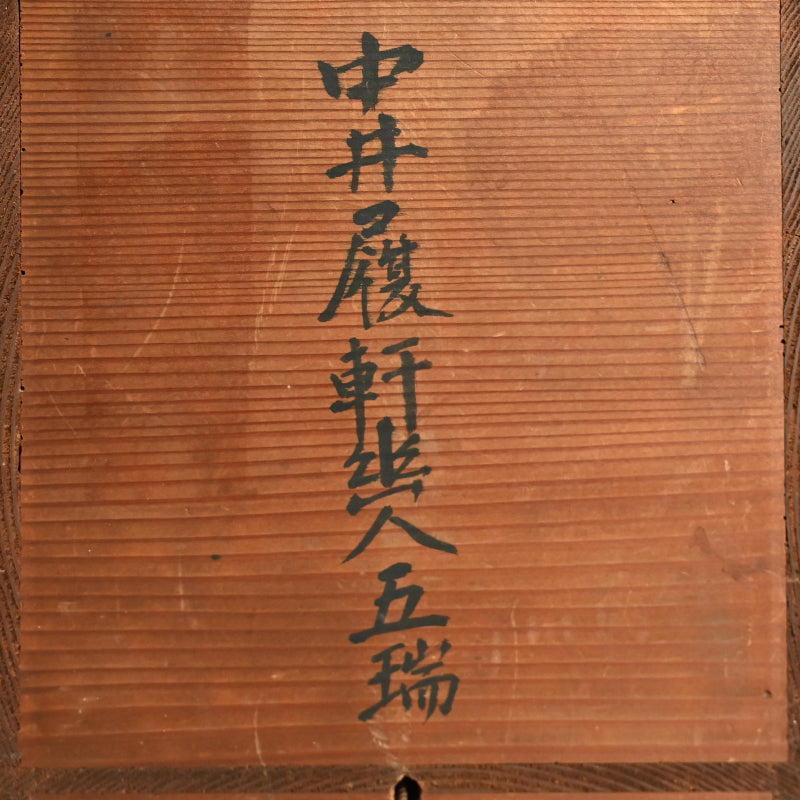 中井履軒幽人五瑞